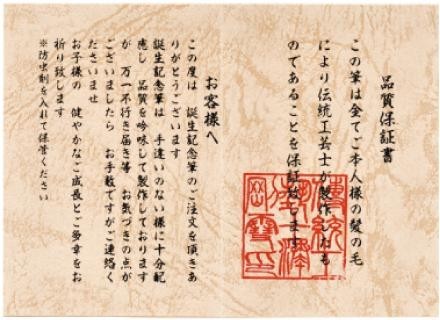 品質保証書
この筆は全てご本人様の髪の毛
により伝統工芸士が製作したも
のであることを保証致します
お客様へ
この度は　誕生記念筆のご注文を頂きあ
りがとうございます
誕生記念筆は　手違いのない様に十分配
慮し　品質を吟味して製作しております
が　万一不行き届き等　お気づきの点が
ございましたら　お手数ですがご連絡く
ださいませ
お子様の　健やかなご成長とご多幸をお
祈り致します
※防虫剤を入れて保管ください